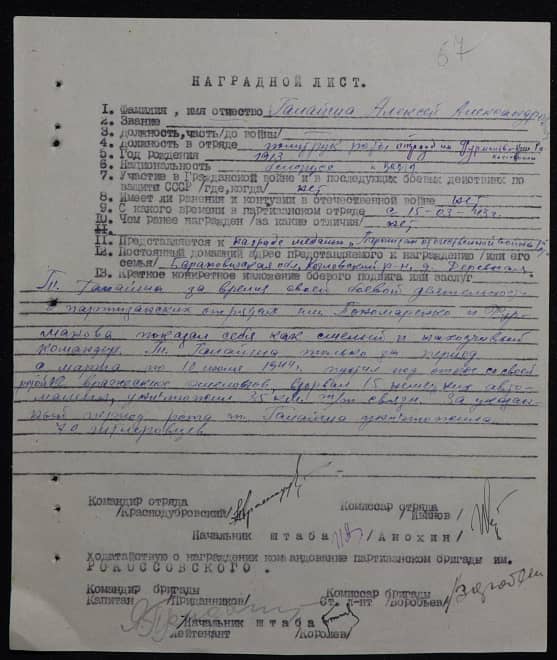 67
НАГРАДНОЙ ЛИСТ.
1. Фамилия, имя отчество Галайша Алексей Александрович
2. Звание
3. Должность, часть/до войны/
4. Должность в отряде политрук роты отряда им Фурманова
5. Год рождения 1913
6. Национальность белорус
7. Участие в Гражданской войне и в последующих боевых действиях по
защите СССР /где, когда/ нет
8. Имеет ли ранения и контузии в отечественной войне нет
9. С какого времени в партизанском отряде с 15-03-43г.
10. Чем ранее награжден /за какие отличия/ нет
11. Представляется к награде медали "Партизан отечественной войны
12. Постоянный домашний адрес представляемого к награждению /или его
семьи/ Барановичская обл, р-н, д. Деревная
13. Краткое конкретное изложение боевого подвига или заслуг
Т. Галайша за время своей боевой деятельности
в партизанских отрядах им Пономаренко и Фур-
манова показал себя как смелый и находчивый
командир. Т. Галайша только за период
с марта по 10 июля 1944г. пустил под откос со своей
ротой вражеских эшелонов, взорвал 15 немецких авто-
машин, уничтожил 35 связи. За указан-
ный период рота т. Галайша уничтожила
70 гитлеровцев.
Командир отряда
/Краснодубровский/
Комиссар отряда
/Иванов/
Начальник штаба /Анохин/
Ходатайствую о награждении командование партизанском бригады им.
РОКОССОВСКОГО.
Командир бригады
Капитан /Приданников/
Комиссар бригады
Ст. л-нт /Воробьев/
Начальник штаба
Лейтенант /Королев/